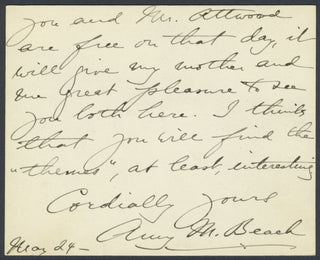 you and Mr. Attwood
are free on that day, it
will give my mother and
me great pleasure to see
you both here. I think
that you will find the
"themes", at least, interesting
Cordially yours
Amy M. Beach
May 24 -